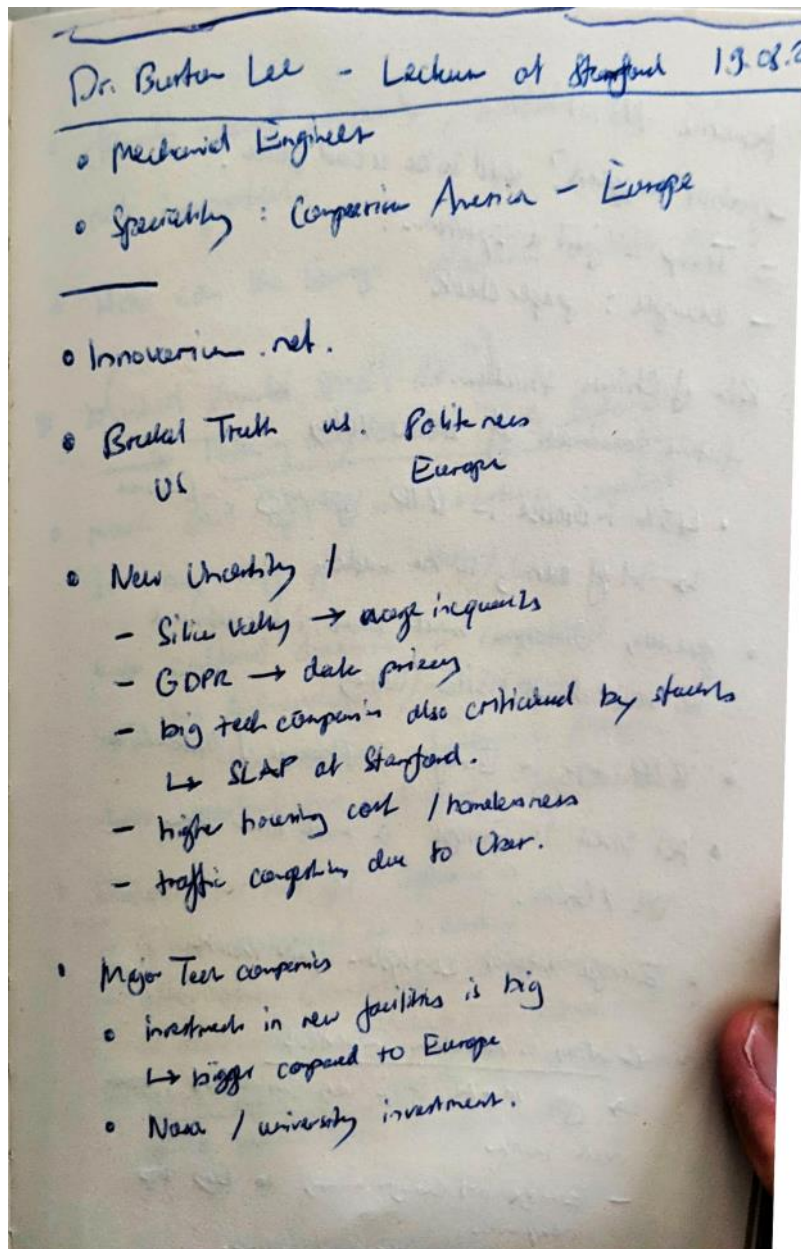 Dr. Burton Lee - Lecture at Stanford 19.08.2
• Mechanical Engineer
• Speciality : Comparison America - Europe
• Innovarium.net.
• Brutal Truth vs. Politeness
US Europe
• New Uncertainty /
- Silicon Valley → wage inequality
- GDPR → data privacy
- big tech companies also criticised by students
↳ SLAP at Stanford.
- higher housing cost / homelessness
- traffic congestion due to Uber.
• Major Tech companies
• investment in new facilities is big
↳ bigger compared to Europe
• Nasa / university investment.